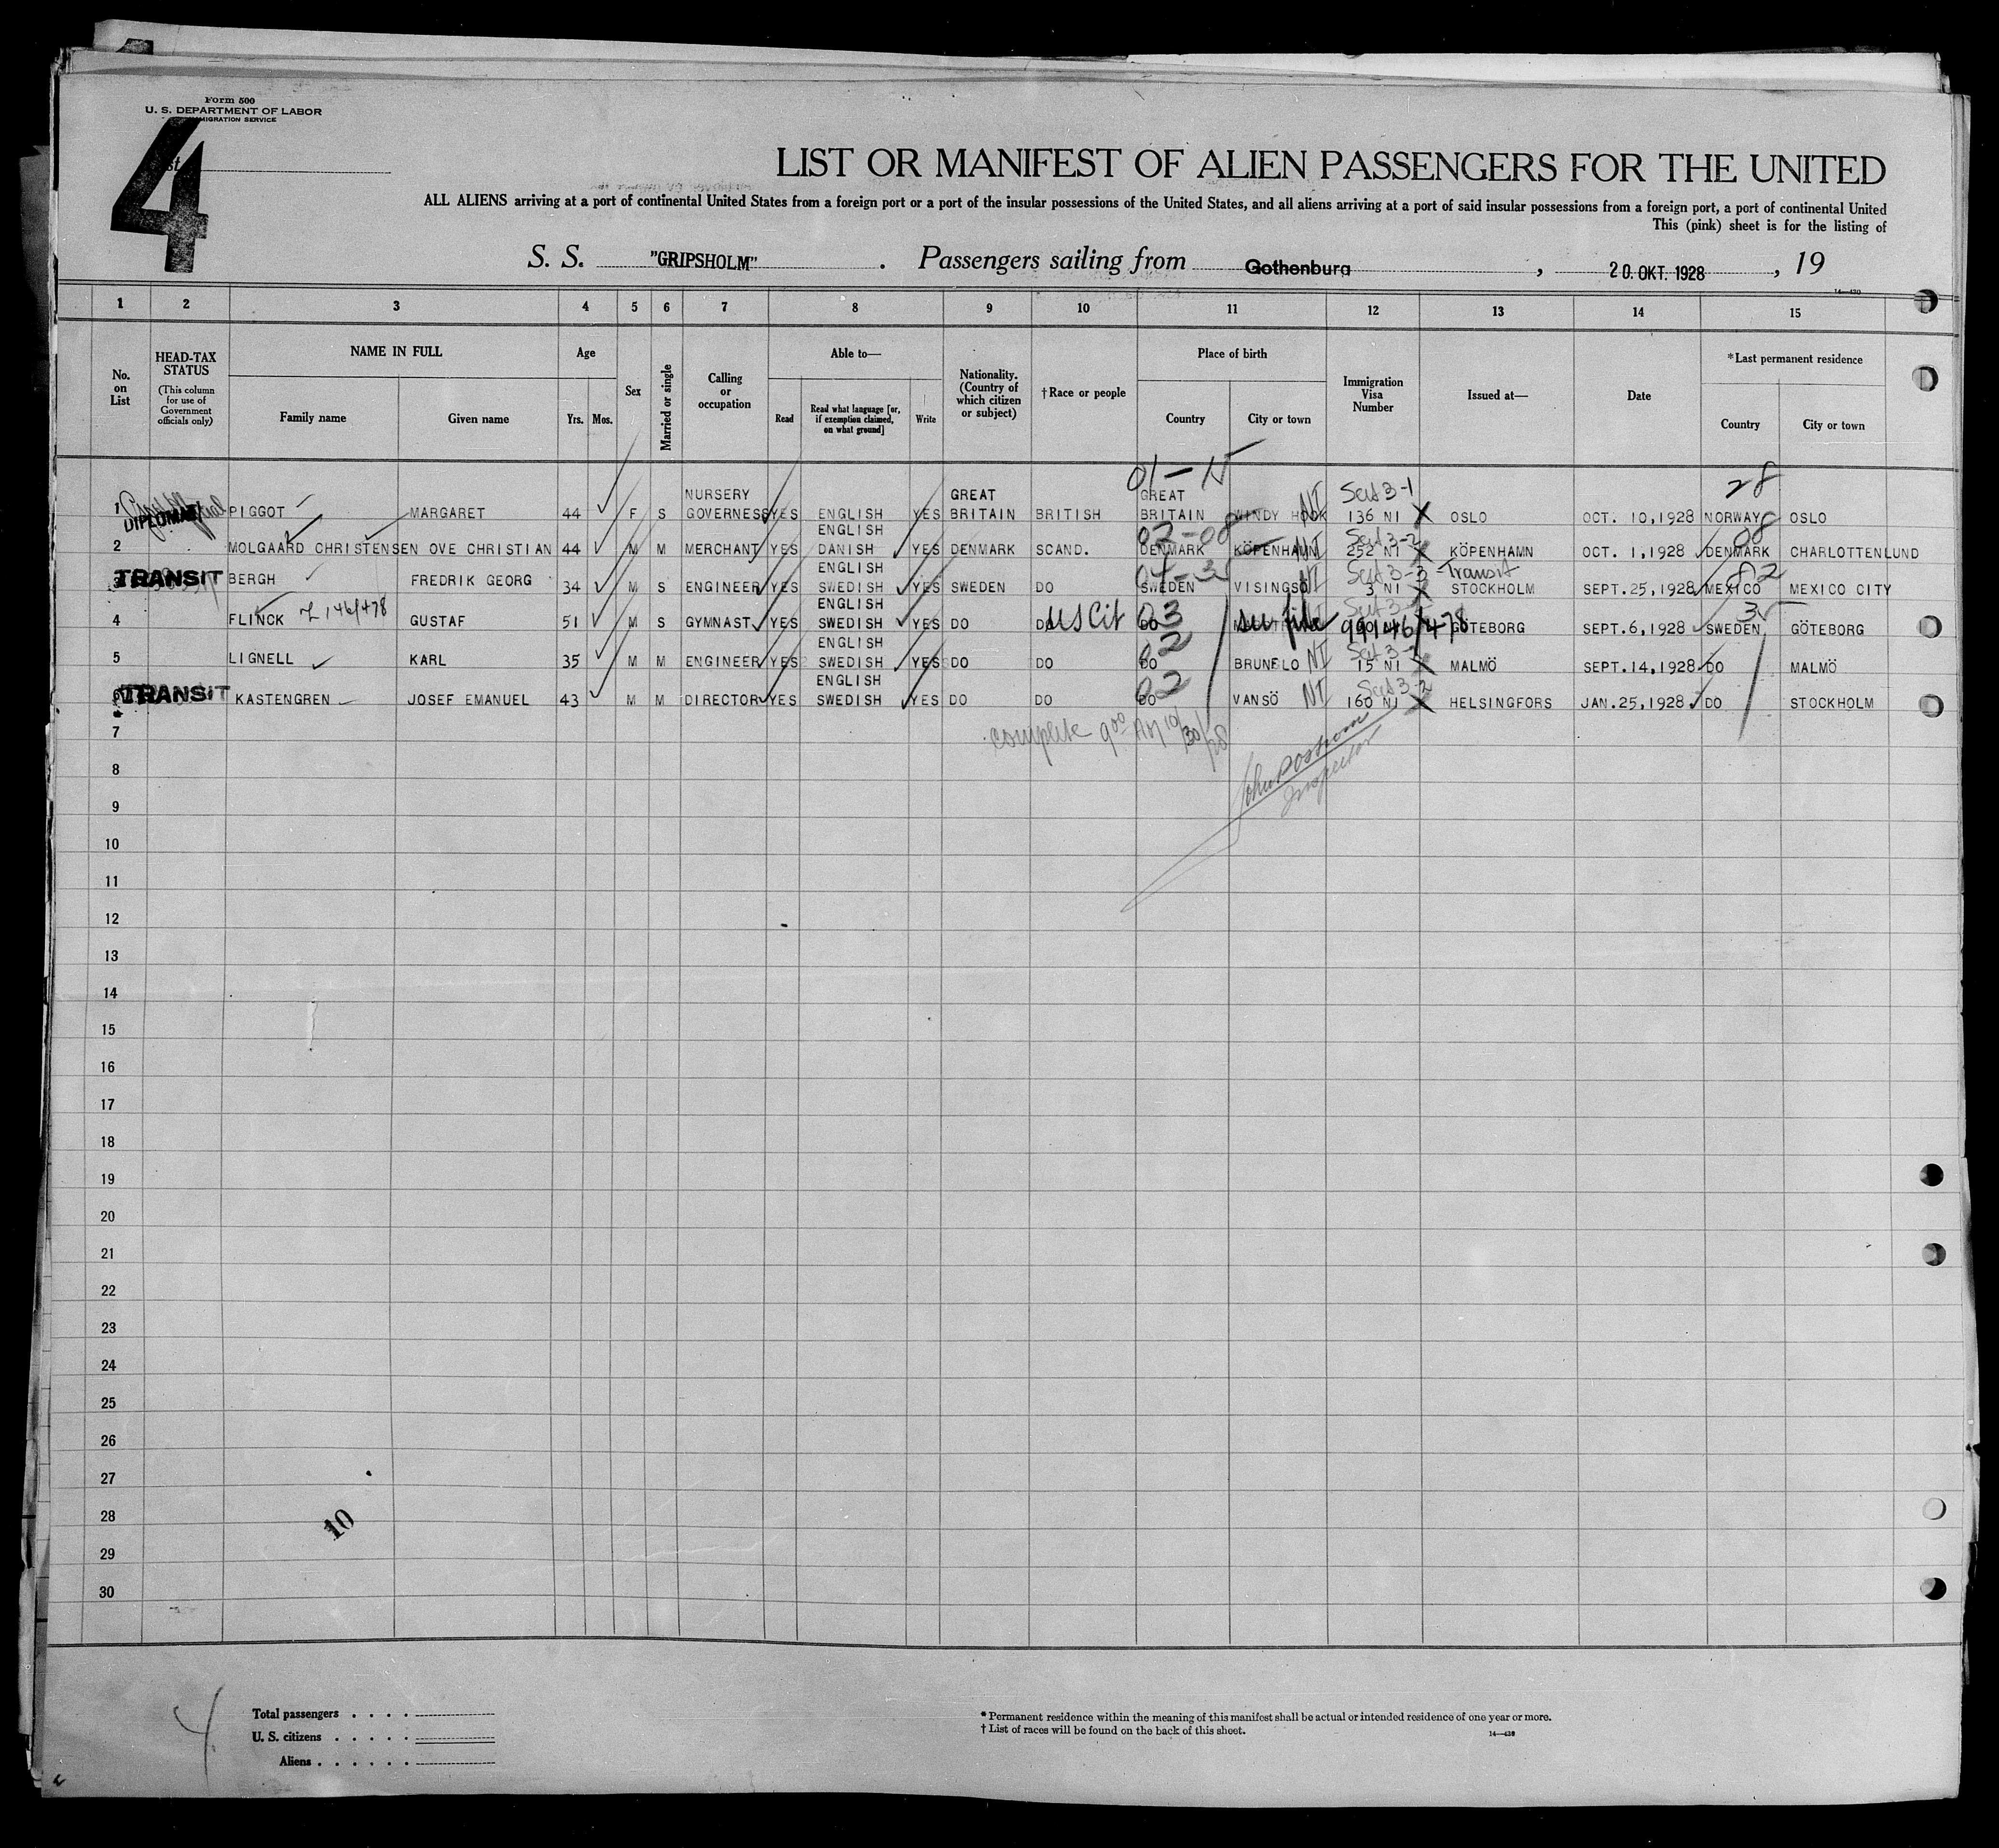 Form 500
U. S. DEPARTMENT OF LABOR
IMMIGRATION SERVICE
4
LIST OR MANIFEST OF ALIEN PASSENGERS FOR THE UNITED
ALL ALIENS arriving at a port of continental United States from a foreign port or a port of the insular possessions of the United States, and all aliens arriving at a port of said insular possessions from a foreign port, a port of continental United
This (pink) sheet is for the listing of
S. S. "GRIPSHOLM" . Passengers sailing from Gothenburg , 20. OKT. 1928 , 19
14—430
1 2 3 4 5 6 7 8 9 10 11 12 13 14 15
No. on List HEAD-TAX STATUS (This column for use of Government officials only) NAME IN FULL Family name Given name Age Yrs. Mos. Sex Married or single Calling or occupation Able to— Read Read what language [or, if exemption claimed, on what ground] Write Nationality. (Country of which citizen or subject) †Race or people Place of birth Country City or town Immigration Visa Number Issued at— Date *Last permanent residence Country City or town
01-15 28
1 DIPLOMAT PIGGOT MARGARET 44 F S NURSERY GOVERNESS YES ENGLISH YES GREAT BRITAIN BRITISH GREAT BRITAIN WINDY HOOK NI Sect 3-1 136 NI OSLO OCT. 10,1928 NORWAY OSLO
2 MOLGAARD CHRISTENSEN OVE CHRISTIAN 44 M M MERCHANT YES ENGLISH DANISH YES DENMARK SCAND. 02-08 DENMARK KÖPENHAMN NI Sect 3-2 252 NI KÖPENHAMN OCT. 1,1928 DENMARK 08 CHARLOTTENLUND
3 TRANSIT BERGH FREDRIK GEORG 34 M S ENGINEER YES ENGLISH SWEDISH YES SWEDEN DO SWEDEN VISINGSÖ NI Sect 3-3 Transit 3 NI STOCKHOLM SEPT.25,1928 MEXICO 82 MEXICO CITY
4 FLINCK 146/478 GUSTAF 51 M S GYMNAST YES ENGLISH SWEDISH YES DO DO US Cit DO 03 see file 99146/478 GÖTEBORG SEPT.6,1928 SWEDEN GÖTEBORG
5 LIGNELL KARL 35 M M ENGINEER YES ENGLISH SWEDISH YES DO DO DO 02 BRUNFLO NI Sect 3-2 15 NI MALMÖ SEPT.14,1928 DO MALMÖ
6 TRANSIT KASTENGREN JOSEF EMANUEL 43 M M DIRECTOR YES ENGLISH SWEDISH YES DO DO DO 02 VANSÖ NI Sect 3-2 160 NI HELSINGFORS JAN.25,1928 DO STOCKHOLM
complete 9 00 AM 10/30/28
Inspector
7
8
9
10
11
12
13
14
15
16
17
18
19
20
21
22
23
24
25
26
27
28
29
30
10
4
Total passengers . . . .
U. S. citizens . . . . .
Aliens . . . . . .
* Permanent residence within the meaning of this manifest shall be actual or intended residence of one year or more.
† List of races will be found on the back of this sheet.
14—430